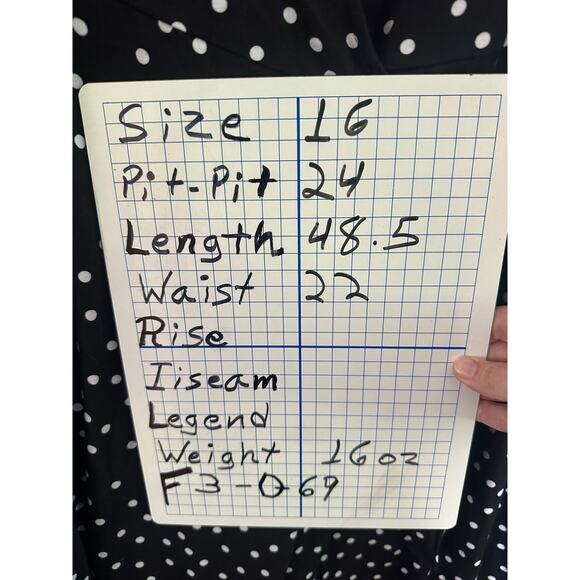 Size 16
Pit-Pit 24
Length 48.5
Waist 22
Rise
Iiseam
Legend
Weight 16oz
F3-069